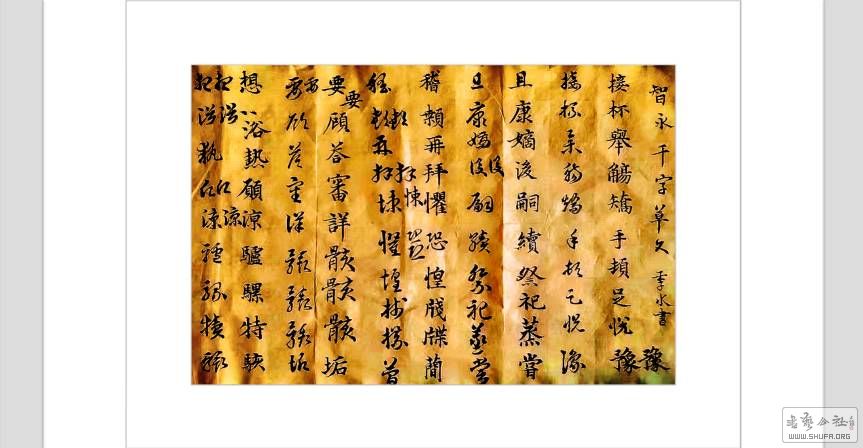 智永千字草文
接杯舉觴矯手頓足悅豫豫
接杯舉觴矯手頓足悅豫
且康嫡後嗣續祭祀蒸嘗
且康嫡後後嗣續祭祀蒸嘗
稽顙再拜悚懼恐惶牋牒簡
稽顙再拜悚懼惶
要要顧答審詳骸骸骸垢
要顧答審詳骸骸骸垢
想浴熱願涼驢騾特駭
想浴執涼
WWW.SHUFA.ORG